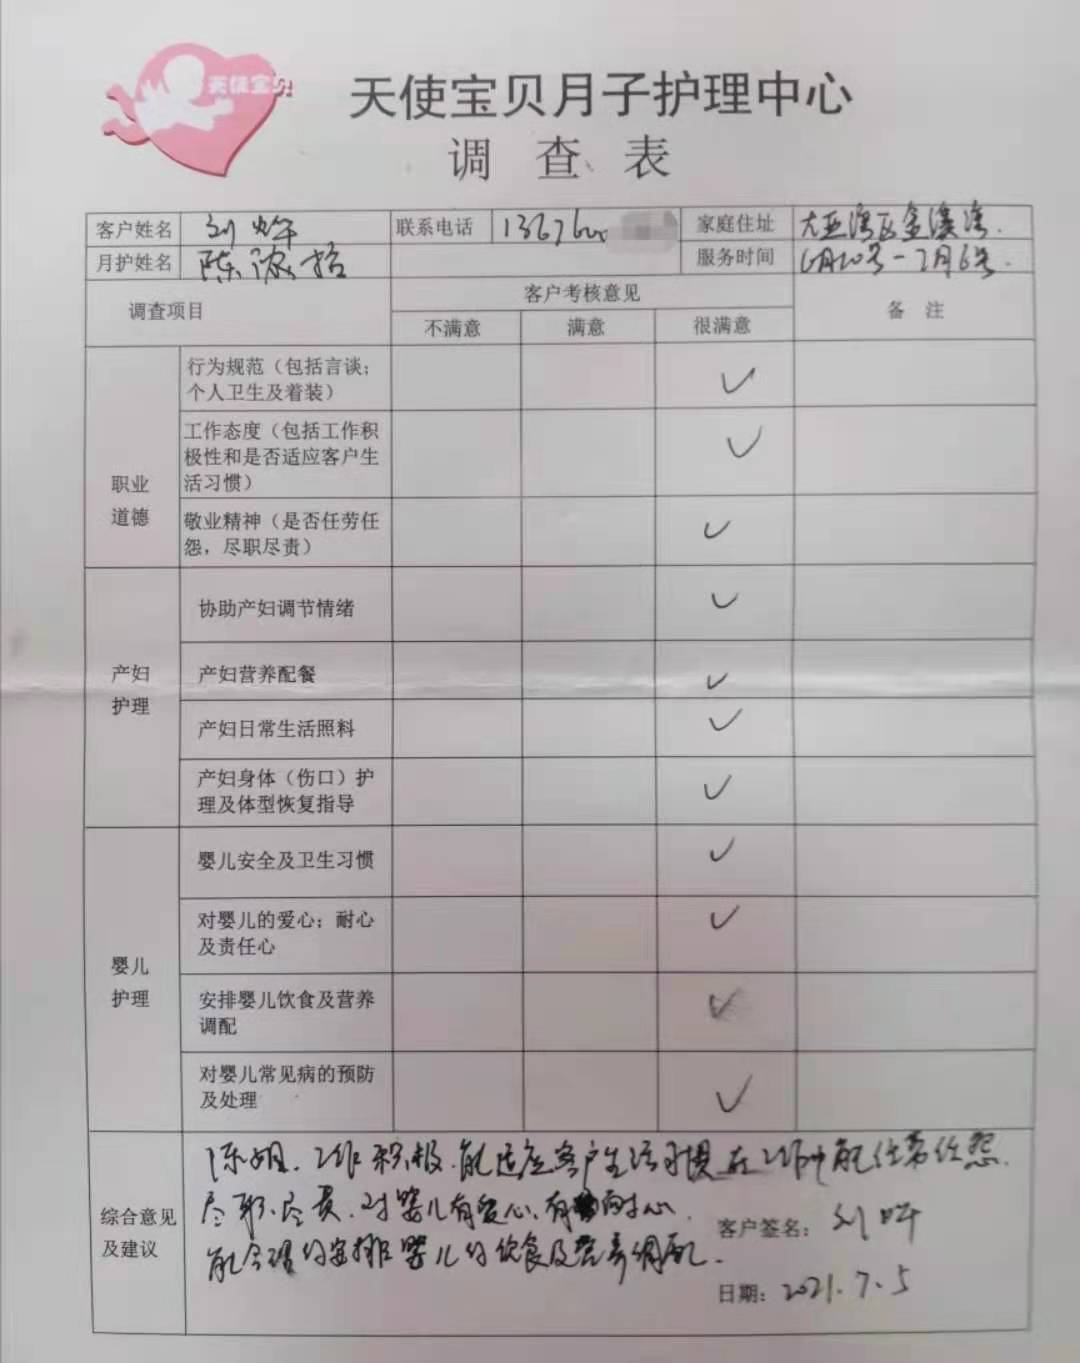 天使宝贝
天使宝贝月子护理中心
调 查 表
客户姓名 刘 联系电话 13676 家庭住址 大亚湾区金溪湾.
月护姓名 陈 服务时间 6月10号-7月6号.
调查项目 客户考核意见 备 注
不满意 满意 很满意
职业
道德
行为规范（包括言谈；
个人卫生及着装） ✓
工作态度（包括工作积
极性和是否适应客户生
活习惯） ✓
敬业精神（是否任劳任
怨，尽职尽责） ✓
产妇
护理
协助产妇调节情绪 ✓
产妇营养配餐 ✓
产妇日常生活照料 ✓
产妇身体（伤口）护
理及体型恢复指导 ✓
婴儿
护理
婴儿安全及卫生习惯 ✓
对婴儿的爱心；耐心
及责任心 ✓
安排婴儿饮食及营养
调配 ✓
对婴儿常见病的预防
及处理 ✓
综合意见
及建议
陈姐，工作积极.能适应客户生活习惯在工作中能任劳任怨.
尽职.尽责.对婴儿有爱心、有耐心.
能合理的安排婴儿的饮食及营养调配.
客户签名：刘
日期：2021.7.5